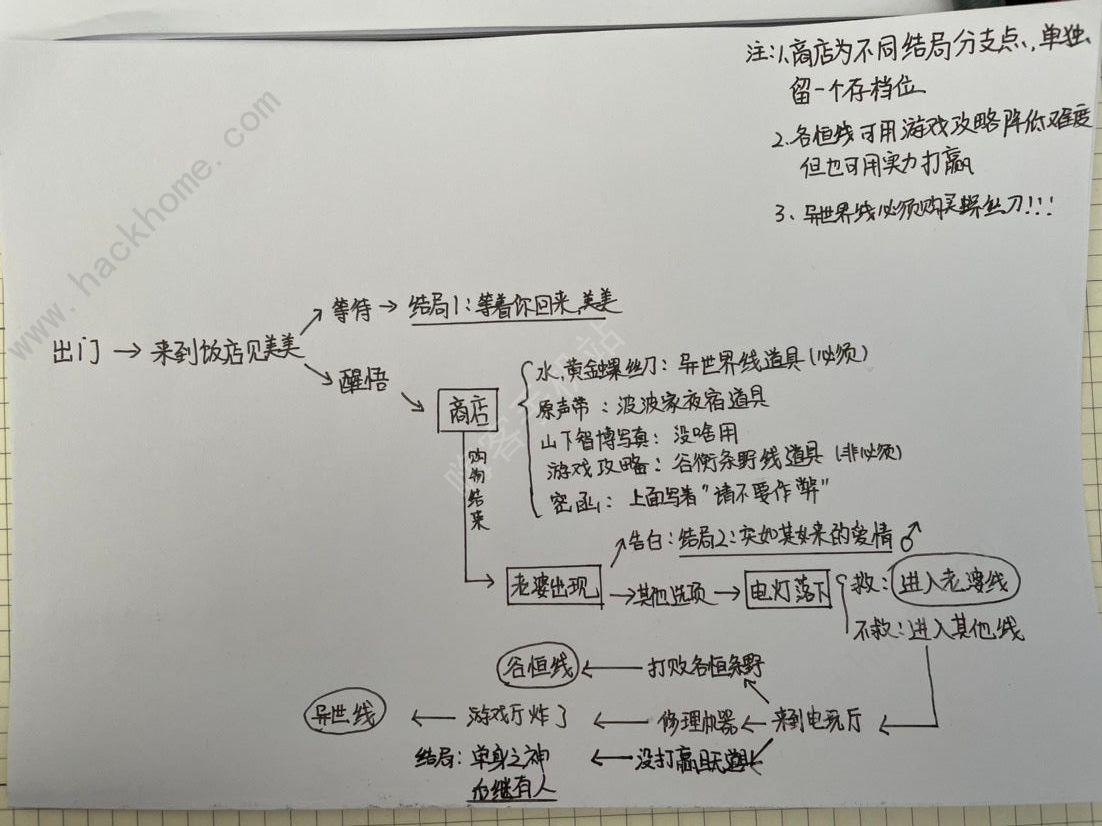 注:1、商店为不同结局分支点、单独
留一个存档位
2、各恒线可用游戏攻略降低难度
但也可用实力打赢
3、异世界线必须购买螺丝刀!!!
www.hackhome.com
等待→结局1:等着你回来,美美
出门→来到饭店见美美
醒悟
商店
水,黄金螺丝刀:异世界线道具(必须)
原声带:波波家夜宿道具
山下智博写真:没啥用
游戏攻略:谷衡条野线道具(非必须)
密函:上面写着"请不要作弊"
购物结束
告白:结局2:突如其如来的爱情♂
老婆出现→其他选项→电灯落下
救:进入老婆线
不救:进入其他线
谷恒线←打败各恒条野
异世线←游戏厅炸了←修理机器←来到电玩厅
结局:单身之神←没打赢且无道具
后继有人